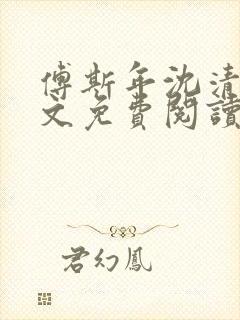 傅斯年沈清
文免費閱讀
君幻鳳